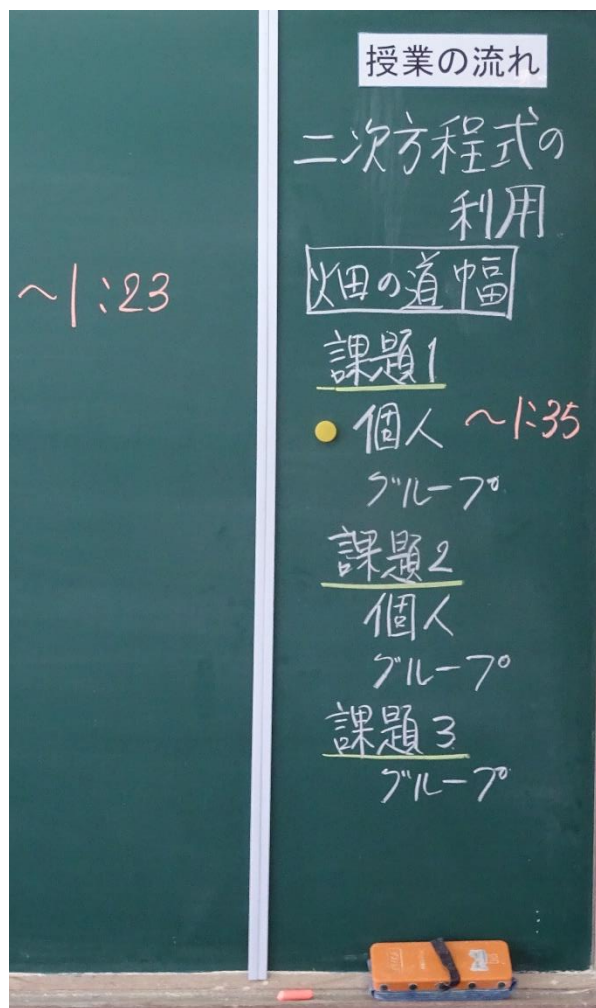 ～1:23
授業の流れ
二次方程式の
利用
畑の道幅
課題1
個人 ～1:35
グループ
課題2
個人
グループ
課題3
グループ